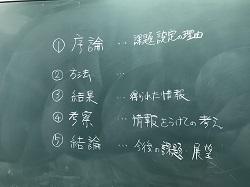 ① 序論 … 課題設定の理由
② 方法 …
③ 結果 … 得られた情報
④ 考察 … 情報をうけての考え
⑤ 結論 … 今後の課題・展望